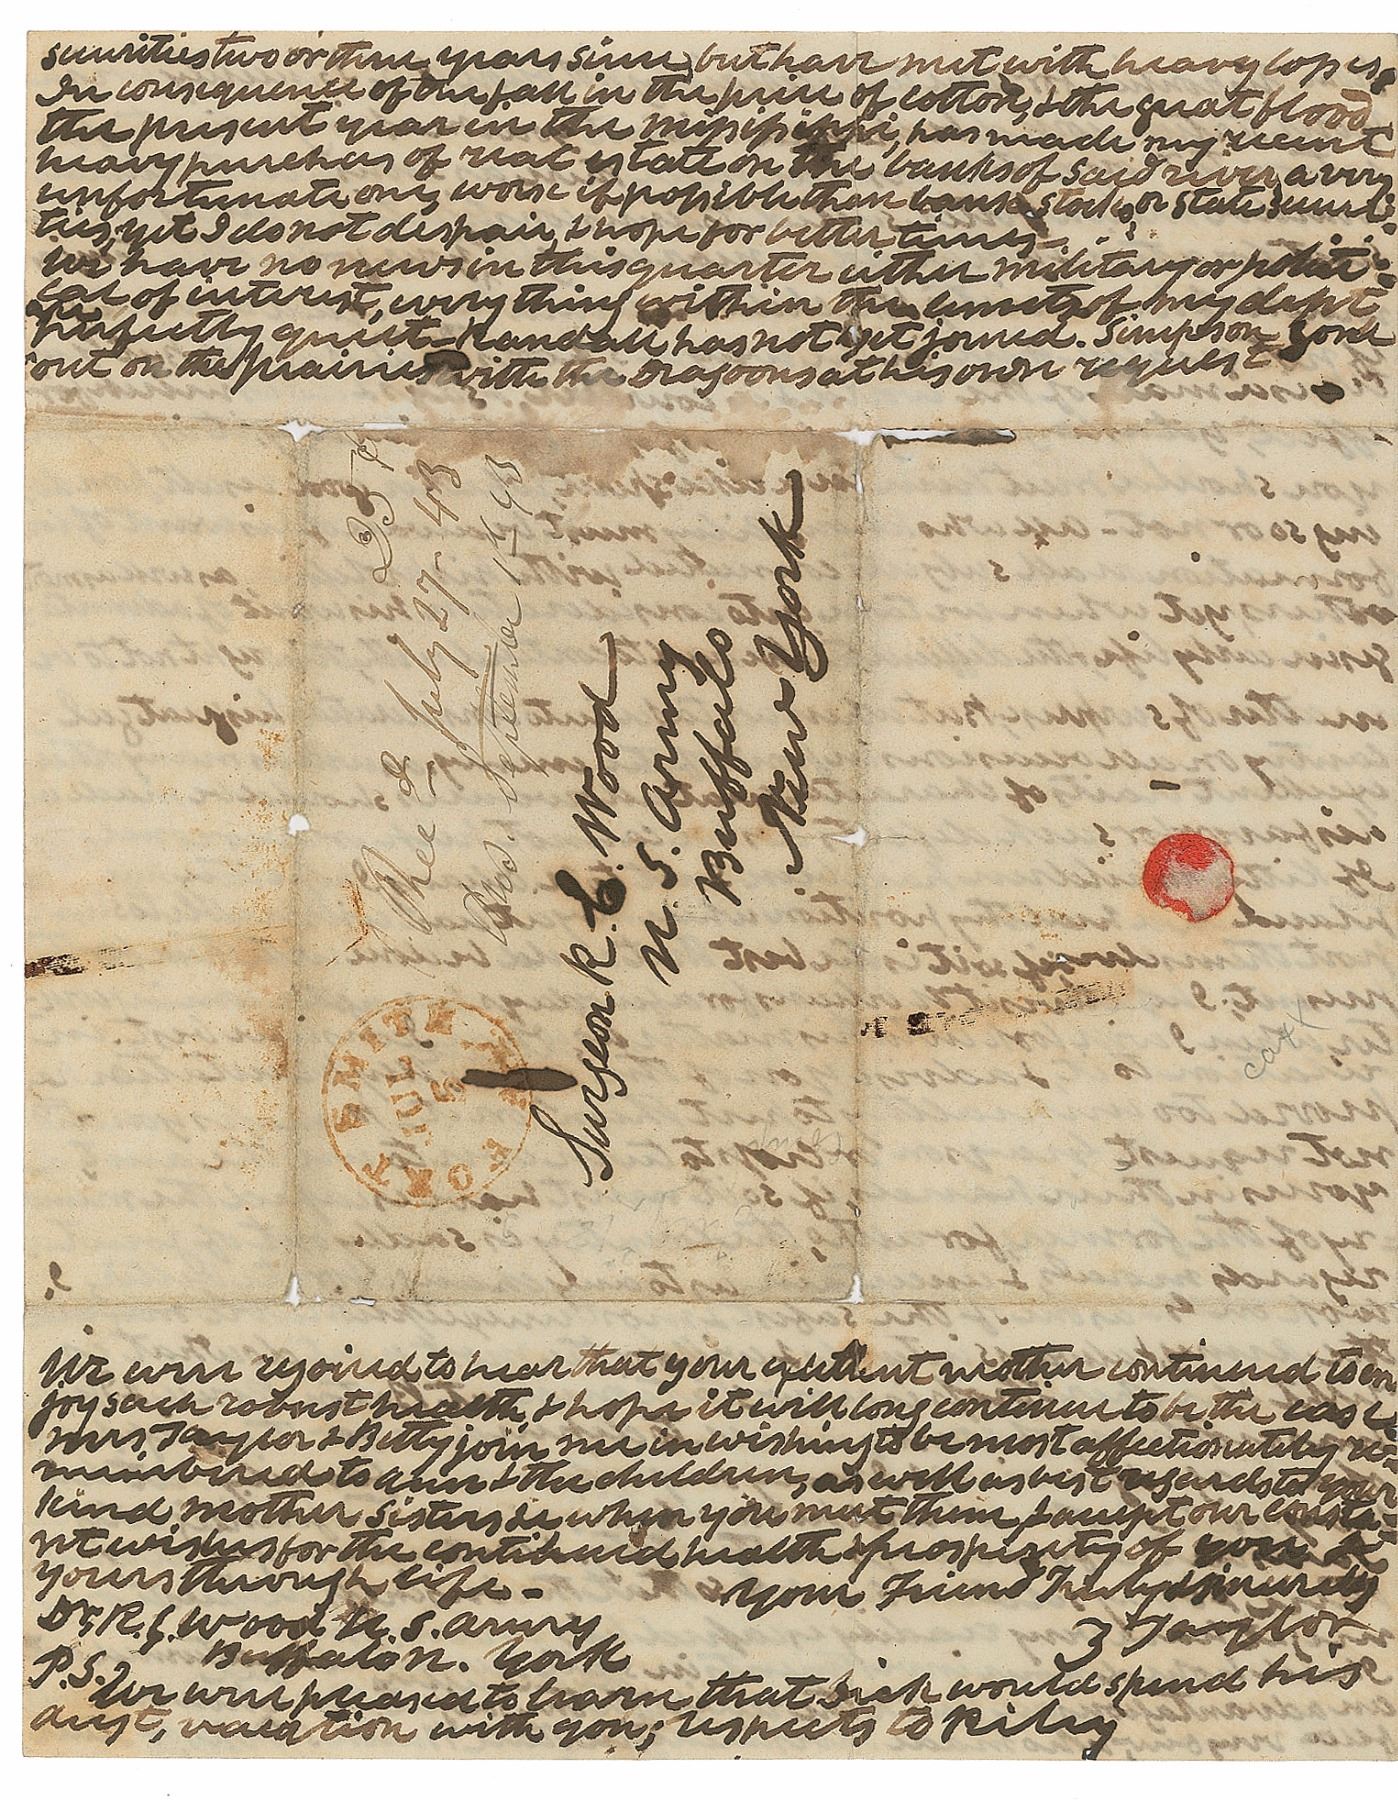 securities two or three years since, but have met with heavy losses,
In consequence of the fall in the price of cotton, & the great flood
the present year in the Mississippi, has made my recent
heavy purchases of real estate on the banks of said river a very
unfortunate one, worse if possible than bank stocks, or State securi-
ties, yet I do not despair, & hope for better times-
We have no news in this quarter either military or politi-
cal of interest, every thing within the limits of my dept
perfectly quiet- Randall has not yet joined. Simpson gone
out on the prairies with the Dragoons at his own request
Rec'd July 27- 43
Ans. September 1st 43
Surgeon R. C. Wood
U. S. Army
Buffalo
New York
FORT SMITH
JUL
ARK
We were rejoiced to hear that your excellent mother continued to en-
joy such robust health, & hope it will long continue to be the case
Mrs. Taylor & Betty join me in wishing to be most affectionately re-
membered to Ann & the children, as well as best regards to your
kind mother Sisters &c when you meet them, & accept our consta-
nt wishes for the continued health & prosperity of you &
yours through life-
Your Friend Truly & sincerely
Z Taylor
Dr. R. C. Wood U. S. Army
Buffalo N. York
P.S.
We were pleased to learn that Dick would spend his
August, vacation with you; respects to Riley